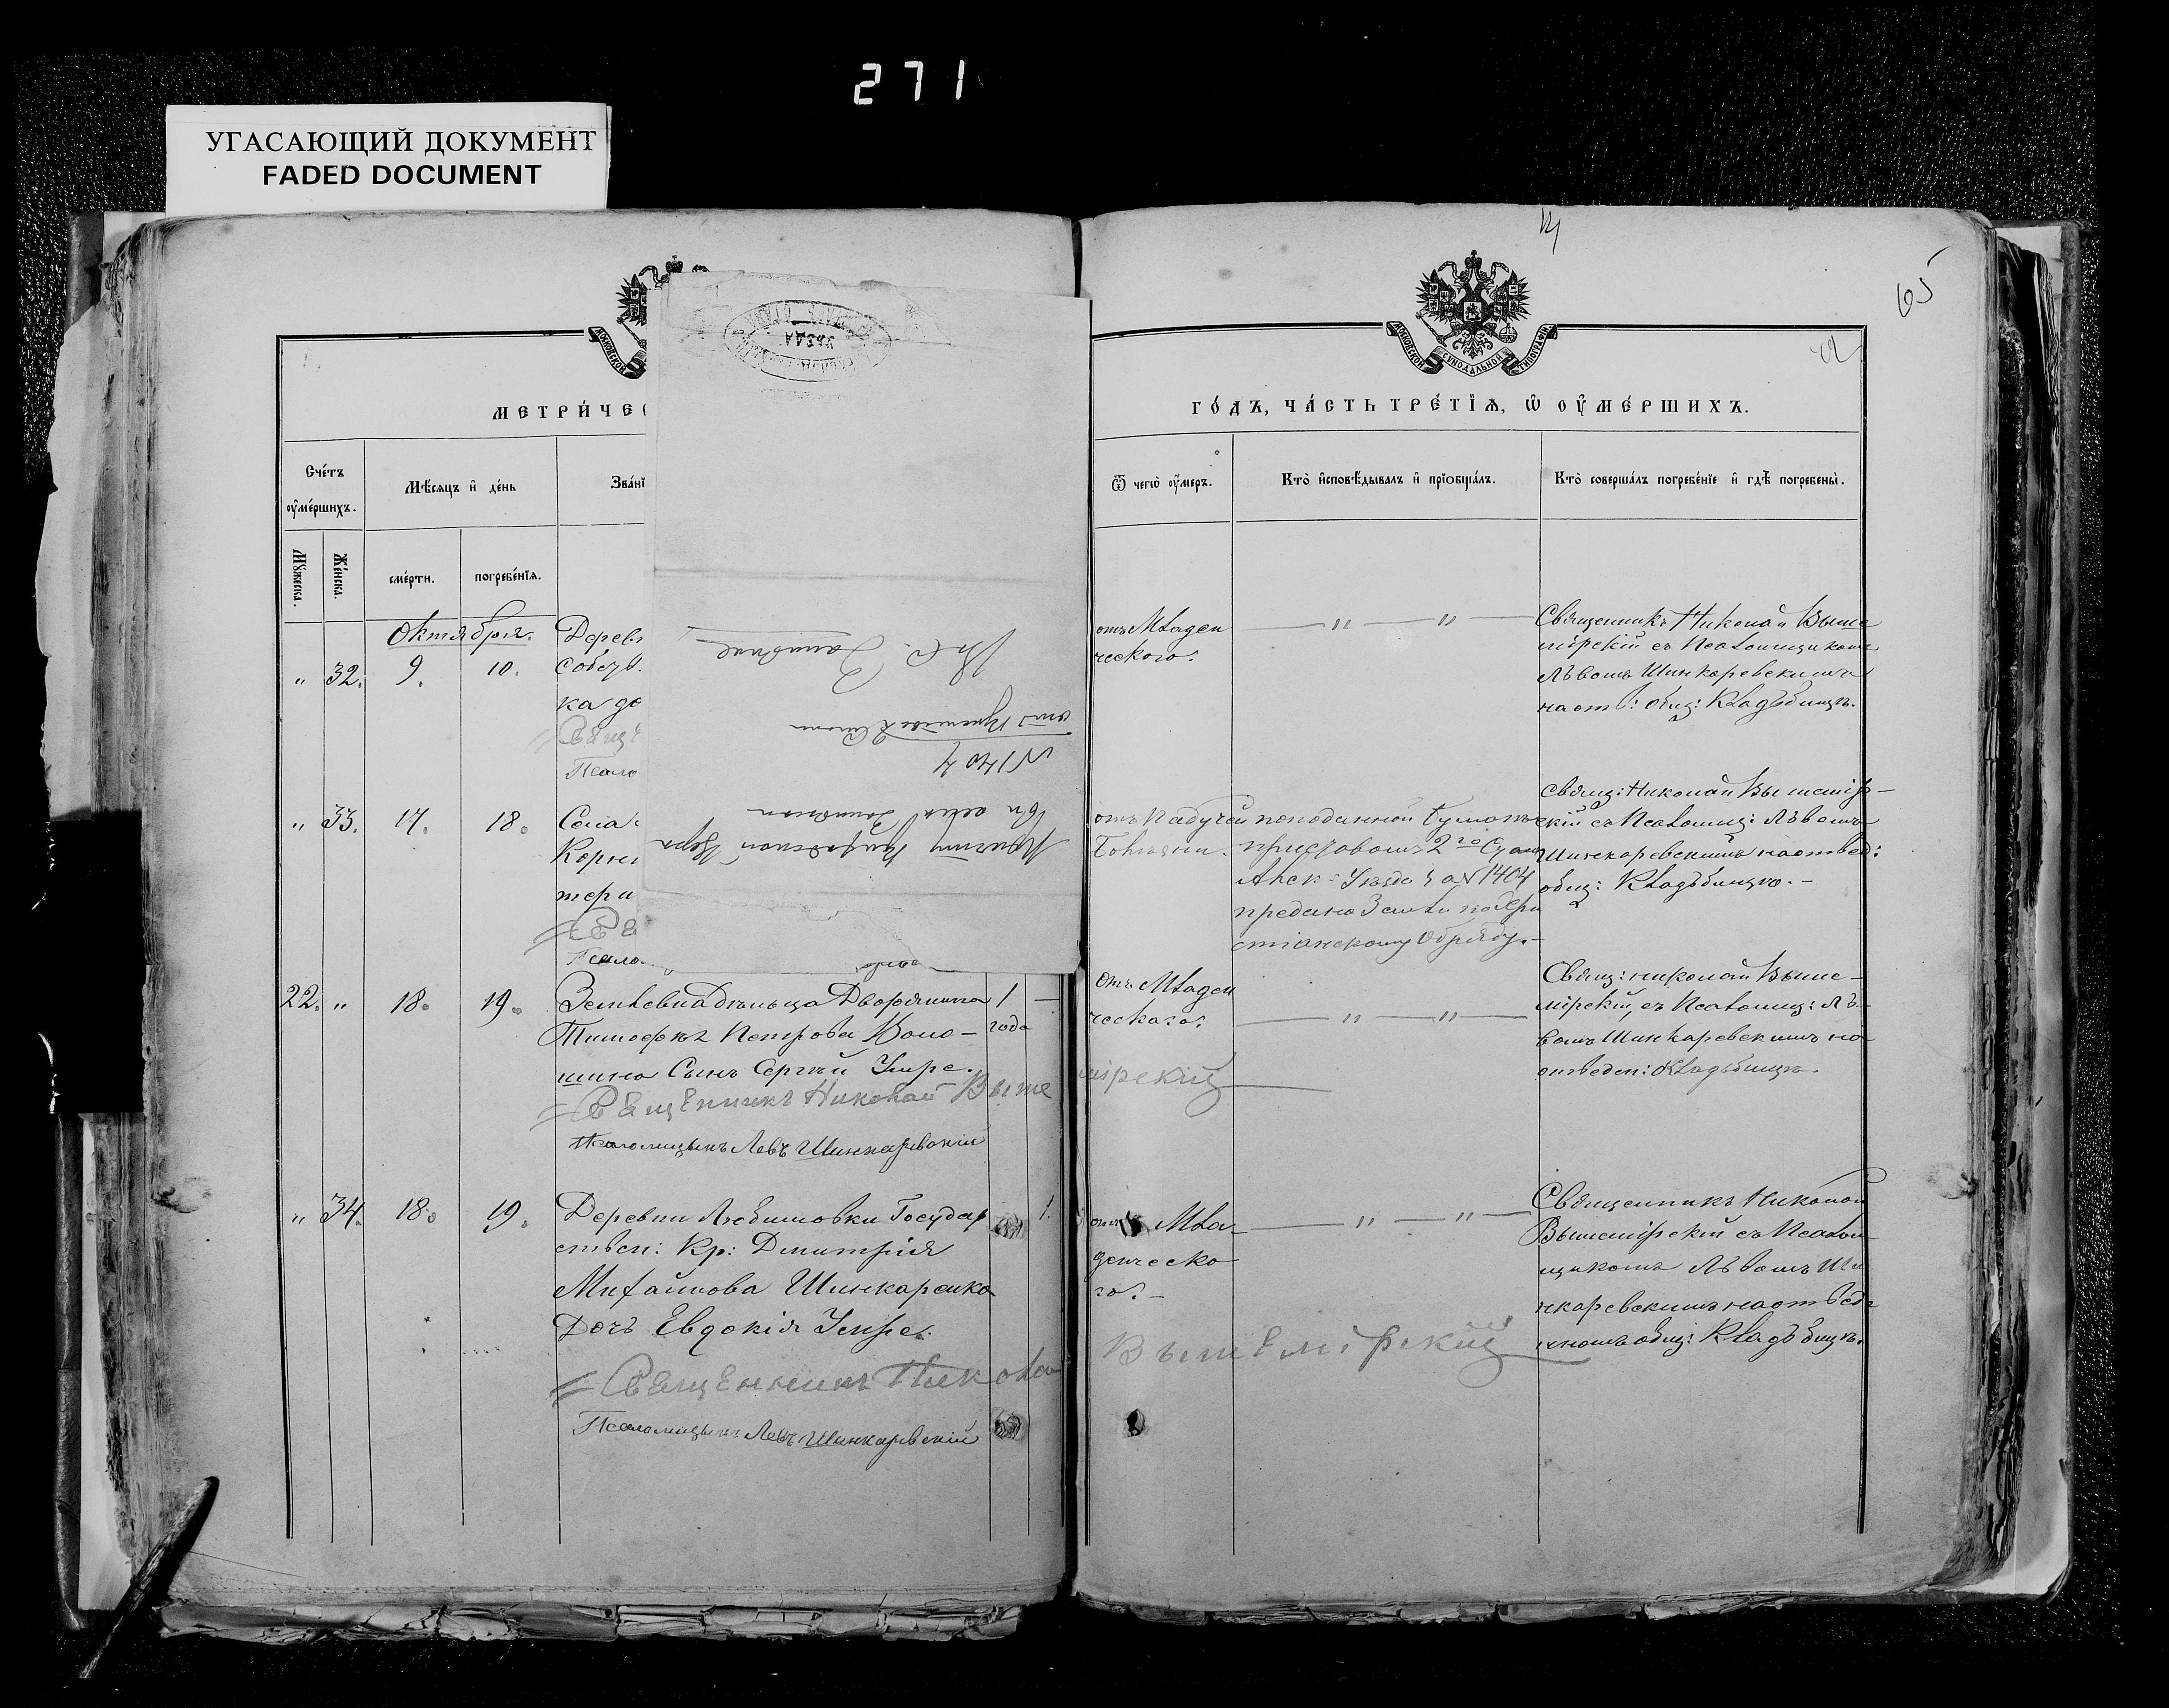 271
УГАСАЮЩИЙ ДОКУМЕНТ
FADED DOCUMENT
МЕТРИ́ЧЕС
Сче́тъ
оу҆ме́ршихъ.
Мѣ́сяцъ и҆ де́нь
Зва́нї
Мꙋ́жеска.
Же́нска.
сме́рти.
погребе́нїѧ.
Октября.
„ 32. 9. 10.
Деревн
собств.
ка до
Свящ
Псало
„ 33. 17. 18.
Села
Корни
тери
Псало
22. „ 18. 19.
Землевладѣльца Дворянина 1 —
Тимофѣя Петрова Воло- года
шина Сынъ Сергѣй Умре.
Священникъ Николай Выше
Псаломщикъ Левъ Шинкаревскій
„ 34. 18. 19. 1.
Деревни Любимовки Государ
ствен: Кр: Дмитрія
Михайлова Шинкаренко
Дочь Евдокія Умре.
Священникъ Никола
Псаломщикъ Левъ Шинкаревскій
N 1404
65
42
МОСКОВСКОЙ СѴНОДАЛЬНОЙ ТИПОГРАФІИ
ГО́ДЪ, ЧА́СТЬ ТРЕ́ТЇѦ, Ѡ҆ ОУ҆МЕ́РШИХЪ.
Ѿ чегѡ̀ оу҆́меръ.
Кто̀ и҆сповѣ́дывалъ и҆ прїѡбща́лъ.
Кто̀ соверша́лъ погребе́нїе и҆ гдѣ̀ погребены̀.
отъ Младен
ческого.
— „ — „ —
Священникъ Николай Выше
мірскій съ Псаломщикомъ
Львомъ Шинкаревскимъ
на отв: общ: Кладбищѣ.
отъ Падучей
болѣзни.
приставомъ 2го Стана
Уѣзда за N 1404
предано Земли по Хри
стіанскому Обряду.-
Свящ: Николай Вышемір-
скій съ Псаломщ: Львомъ
Шинкаревскимъ на отвед:
общ: Кладбищѣ.-
Отъ Младен
ческаго.
— „ — „ —
Свящ: Николай Выше-
мірскій, съ Псаломщ: Ль-
вомъ Шинкаревскимъ на
отведен: Кладбищѣ.
мірскій
отъ Мла-
денческо
го.-
— „ — „ —
Священникъ Николай
Вышемірскій съ Псалом
щикомъ Львомъ Ши
нкаревскимъ на отведе
нномъ общ: Кладбищѣ.
Вышемірскій